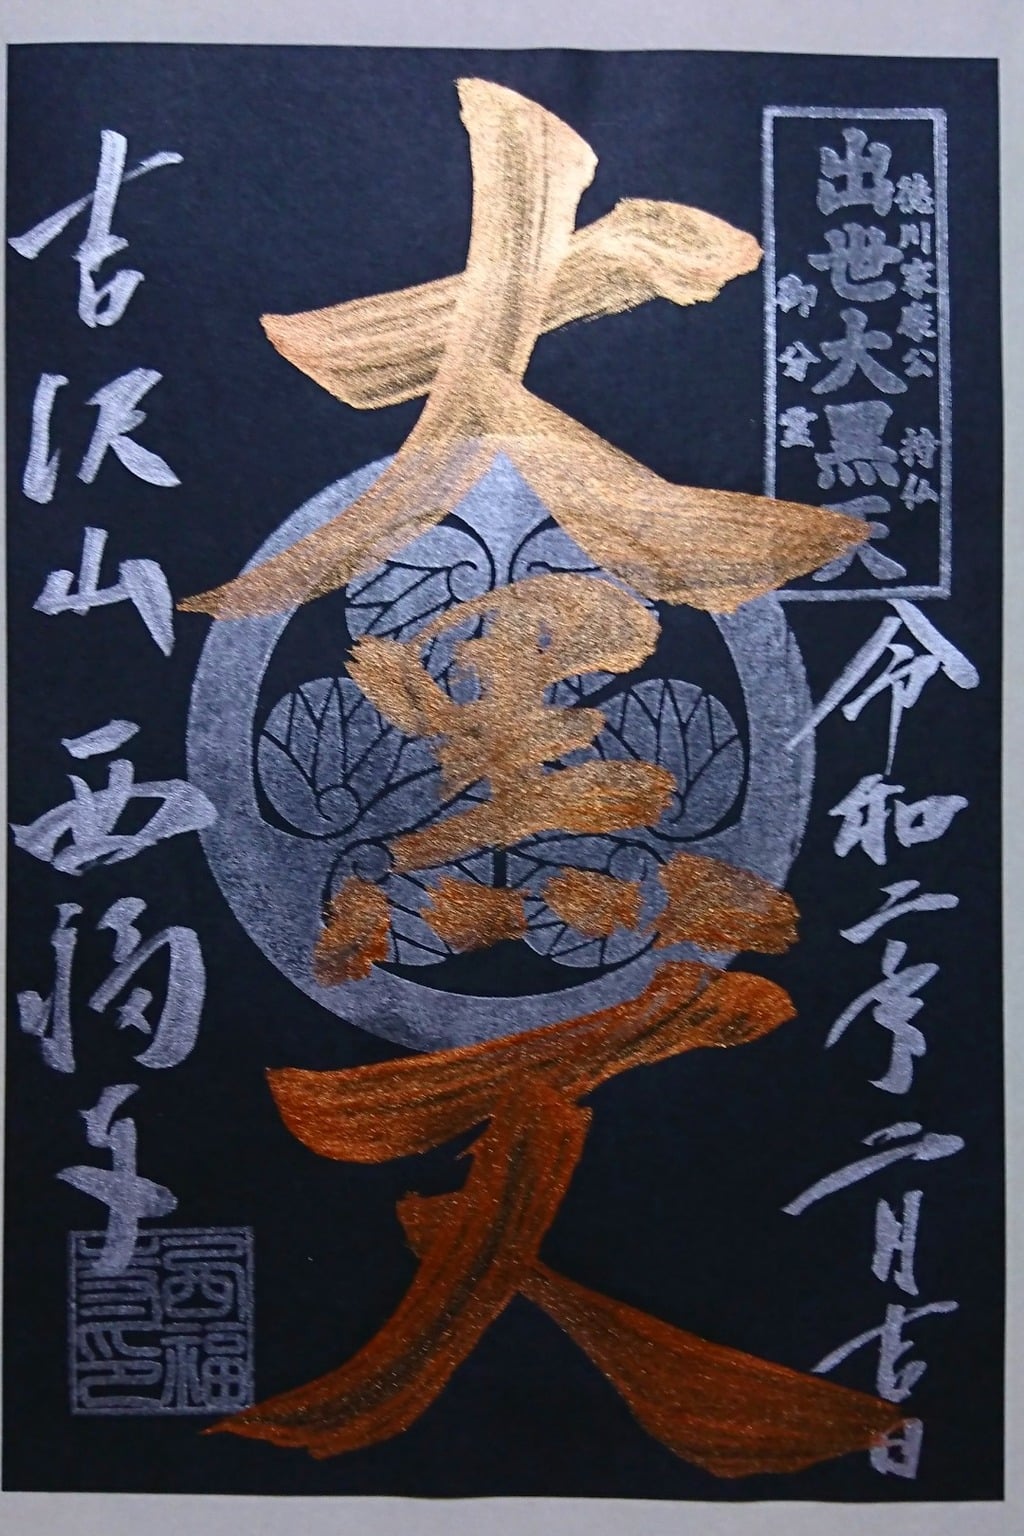 徳川家康公 持仏
出世大黒天
御分霊
令和二年二月吉日
大黒天
吉沢山 西福寺
西福
寺印